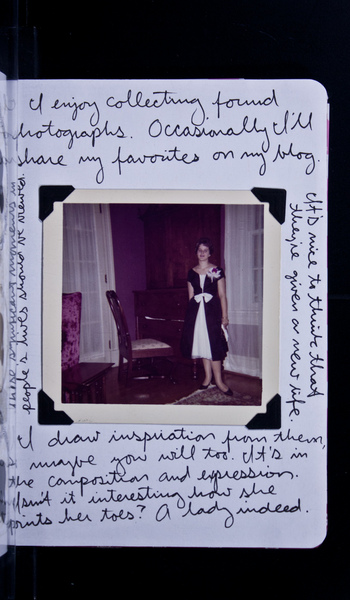 I enjoy collecting found
photographs. Occasionally I'll
share my favorites on my blog.
It's nice to think that
they're given a new life.
I draw inspiration from them,
maybe you will too. It's in
the composition and expression.
Isn't it interesting how she
points her toes? A lady indeed.
these moments in
people's lives should be viewed.